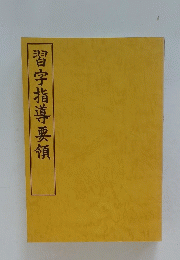 習字指導要領